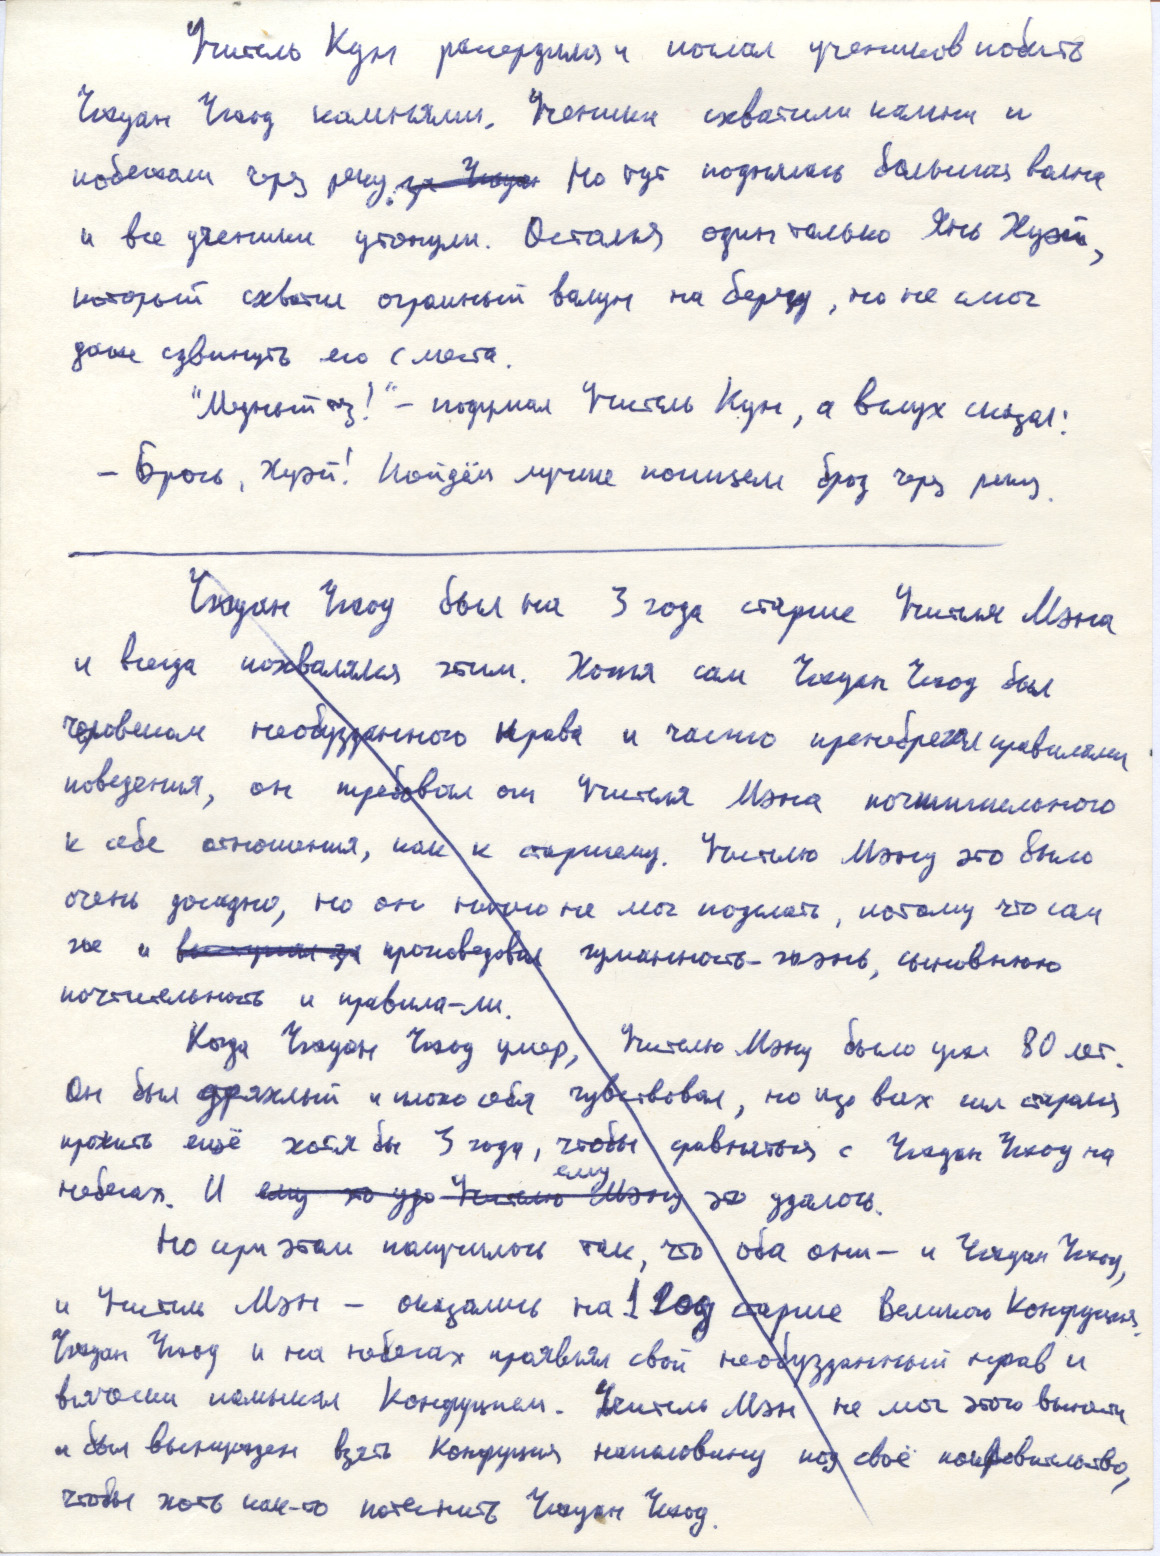 Учитель Кун рассердился и послал учеников побить
Чжуан Чжоу камнями. Ученики схватили камни и
побежали через реку. за Чжуан Но тут поднялась большая волна
и все ученики утонули. Остался один только Янь Хуэй,
который схватил огромный валун на берегу, но не смог
даже сдвинуть его с места.
"Медный таз!" – подумал Учитель Кун, а вслух сказал:
– Брось, Хуэй! Пойдём лучше поищем брод через реку.
Чжуан Чжоу был на 3 года старше Учителя Мэна
и всегда похвалялся этим. Хотя сам Чжуан Чжоу был
человеком необузданного нрава и часто пренебрегал правилами
поведения, он требовал от Учителя Мэна почтительного
к себе отношения, как к старшему. Учителю Мэну это было
очень досадно, но он ничего не мог поделать, потому что сам
же и проповедовал гуманность-жэнь, сыновнюю
почтительность и правила-ли.
Когда Чжуан Чжоу умер, Учителю Мэну было уже 80 лет.
Он был дряхлый и плохо себя чувствовал, но изо всех сил старался
прожить ещё хотя бы 3 года, чтобы сравняться с Чжуан Чжоу на
небесах. И ему это удо Учителю Мэну ему это удалось.
Но при этом получилось так, что оба они – и Чжуан Чжоу,
и Учитель Мэн – оказались на 1 год старше Великого Конфуция.
Чжуан Чжоу и на небесах проявлял свой необузданный нрав и
всячески помыкал Конфуцием. Учитель Мэн не мог этого выносить
и был вынужден взять Конфуция наполовину под своё покровительство,
чтобы хоть как-то потеснить Чжуан Чжоу.